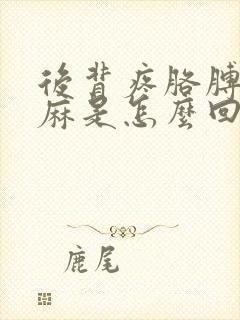 後背疼胳膊
麻是怎麼回
鹿尾